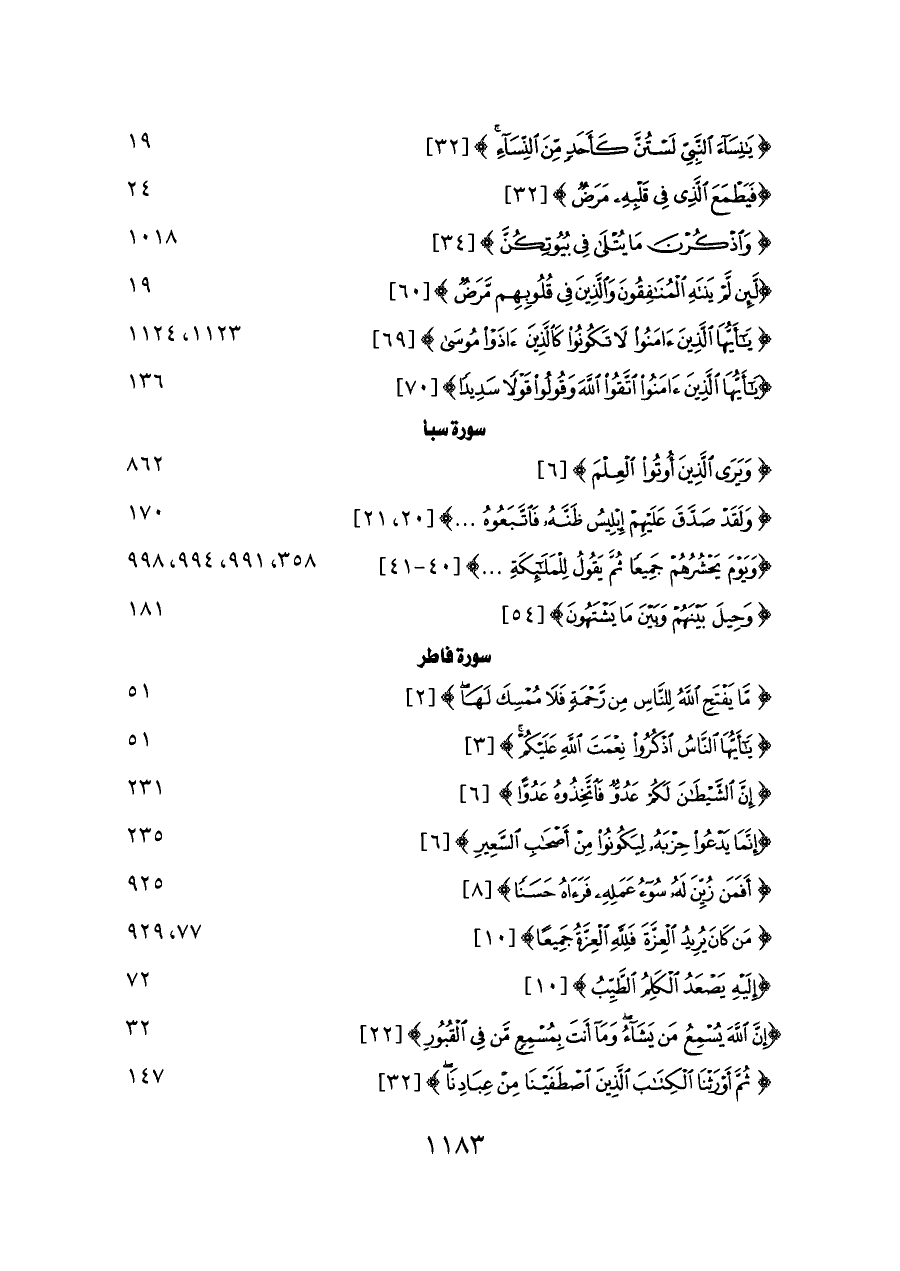 ﴿ يَٰنِسَآءَ ٱلنَّبِيِّ لَسۡتُنَّ كَأَحَدٖ مِّنَ ٱلنِّسَآءِۚ ﴾ [٣٢] ١٩
﴿فَيَطۡمَعَ ٱلَّذِي فِي قَلۡبِهِۦ مَرَضٞ ﴾ [٣٢] ٢٤
﴿ وَٱذۡكُرۡنَ مَا يُتۡلَىٰ فِي بُيُوتِكُنَّ ﴾ [٣٤] ١٠١٨
﴿لَّئِن لَّمۡ يَنتَهِ ٱلۡمُنَٰفِقُونَ وَٱلَّذِينَ فِي قُلُوبِهِم مَّرَضٞ ﴾ [٦٠] ١٩
﴿ يَٰٓأَيُّهَا ٱلَّذِينَ ءَامَنُواْ لَا تَكُونُواْ كَٱلَّذِينَ ءَاذَوۡاْ مُوسَىٰ ﴾ [٦٩] ١١٢٣، ١١٢٤
﴿يَٰٓأَيُّهَا ٱلَّذِينَ ءَامَنُواْ ٱتَّقُواْ ٱللَّهَ وَقُولُواْ قَوۡلٗا سَدِيدٗا﴾ [٧٠] ١٣٦
سورة سبأ
﴿ وَيَرَى ٱلَّذِينَ أُوتُواْ ٱلۡعِلۡمَ ﴾ [٦] ٨٦٢
﴿ وَلَقَدۡ صَدَّقَ عَلَيۡهِمۡ إِبۡلِيسُ ظَنَّهُۥ فَٱتَّبَعُوهُ ...﴾ [٢٠، ٢١] ١٧٠
﴿وَيَوۡمَ يَحۡشُرُهُمۡ جَمِيعٗا ثُمَّ يَقُولُ لِلۡمَلَٰٓئِكَةِ ...﴾ [٤٠-٤١] ٣٥٨، ٩٩١، ٩٩٤، ٩٩٨
﴿ وَحِيلَ بَيۡنَهُمۡ وَبَيۡنَ مَا يَشۡتَهُونَ﴾ [٥٤] ١٨١
سورة فاطر
﴿ مَّا يَفۡتَحِ ٱللَّهُ لِلنَّاسِ مِن رَّحۡمَةٖ فَلَا مُمۡسِكَ لَهَاۖ ﴾ [٢] ٥١
﴿ يَٰٓأَيُّهَا ٱلنَّاسُ ٱذۡكُرُواْ نِعۡمَتَ ٱللَّهِ عَلَيۡكُمۡۚ ﴾ [٣] ٥١
﴿ إِنَّ ٱلشَّيۡطَٰنَ لَكُمۡ عَدُوّٞ فَٱتَّخِذُوهُ عَدُوًّا ﴾ [٦] ٢٣١
﴿إِنَّمَا يَدۡعُواْ حِزۡبَهُۥ لِيَكُونُواْ مِنۡ أَصۡحَٰبِ ٱلسَّعِيرِ ﴾ [٦] ٢٣٥
﴿ أَفَمَن زُيِّنَ لَهُۥ سُوٓءُ عَمَلِهِۦ فَرَءَاهُ حَسَنٗا﴾ [٨] ٩٢٥
﴿ مَن كَانَ يُرِيدُ ٱلۡعِزَّةَ فَلِلَّهِ ٱلۡعِزَّةُ جَمِيعًا﴾ [١٠] ٧٧، ٩٢٩
﴿إِلَيۡهِ يَصۡعَدُ ٱلۡكَلِمُ ٱلطَّيِّبُ ﴾ [١٠] ٧٢
﴿إِنَّ ٱللَّهَ يُسۡمِعُ مَن يَشَآءُۖ وَمَآ أَنتَ بِمُسۡمِعٖ مَّن فِي ٱلۡقُبُورِ ﴾ [٢٢] ٣٢
﴿ ثُمَّ أَوۡرَثۡنَا ٱلۡكِتَٰبَ ٱلَّذِينَ ٱصۡطَفَيۡنَا مِنۡ عِبَادِنَاۖ ﴾ [٣٢] ١٤٧
١١٨٣